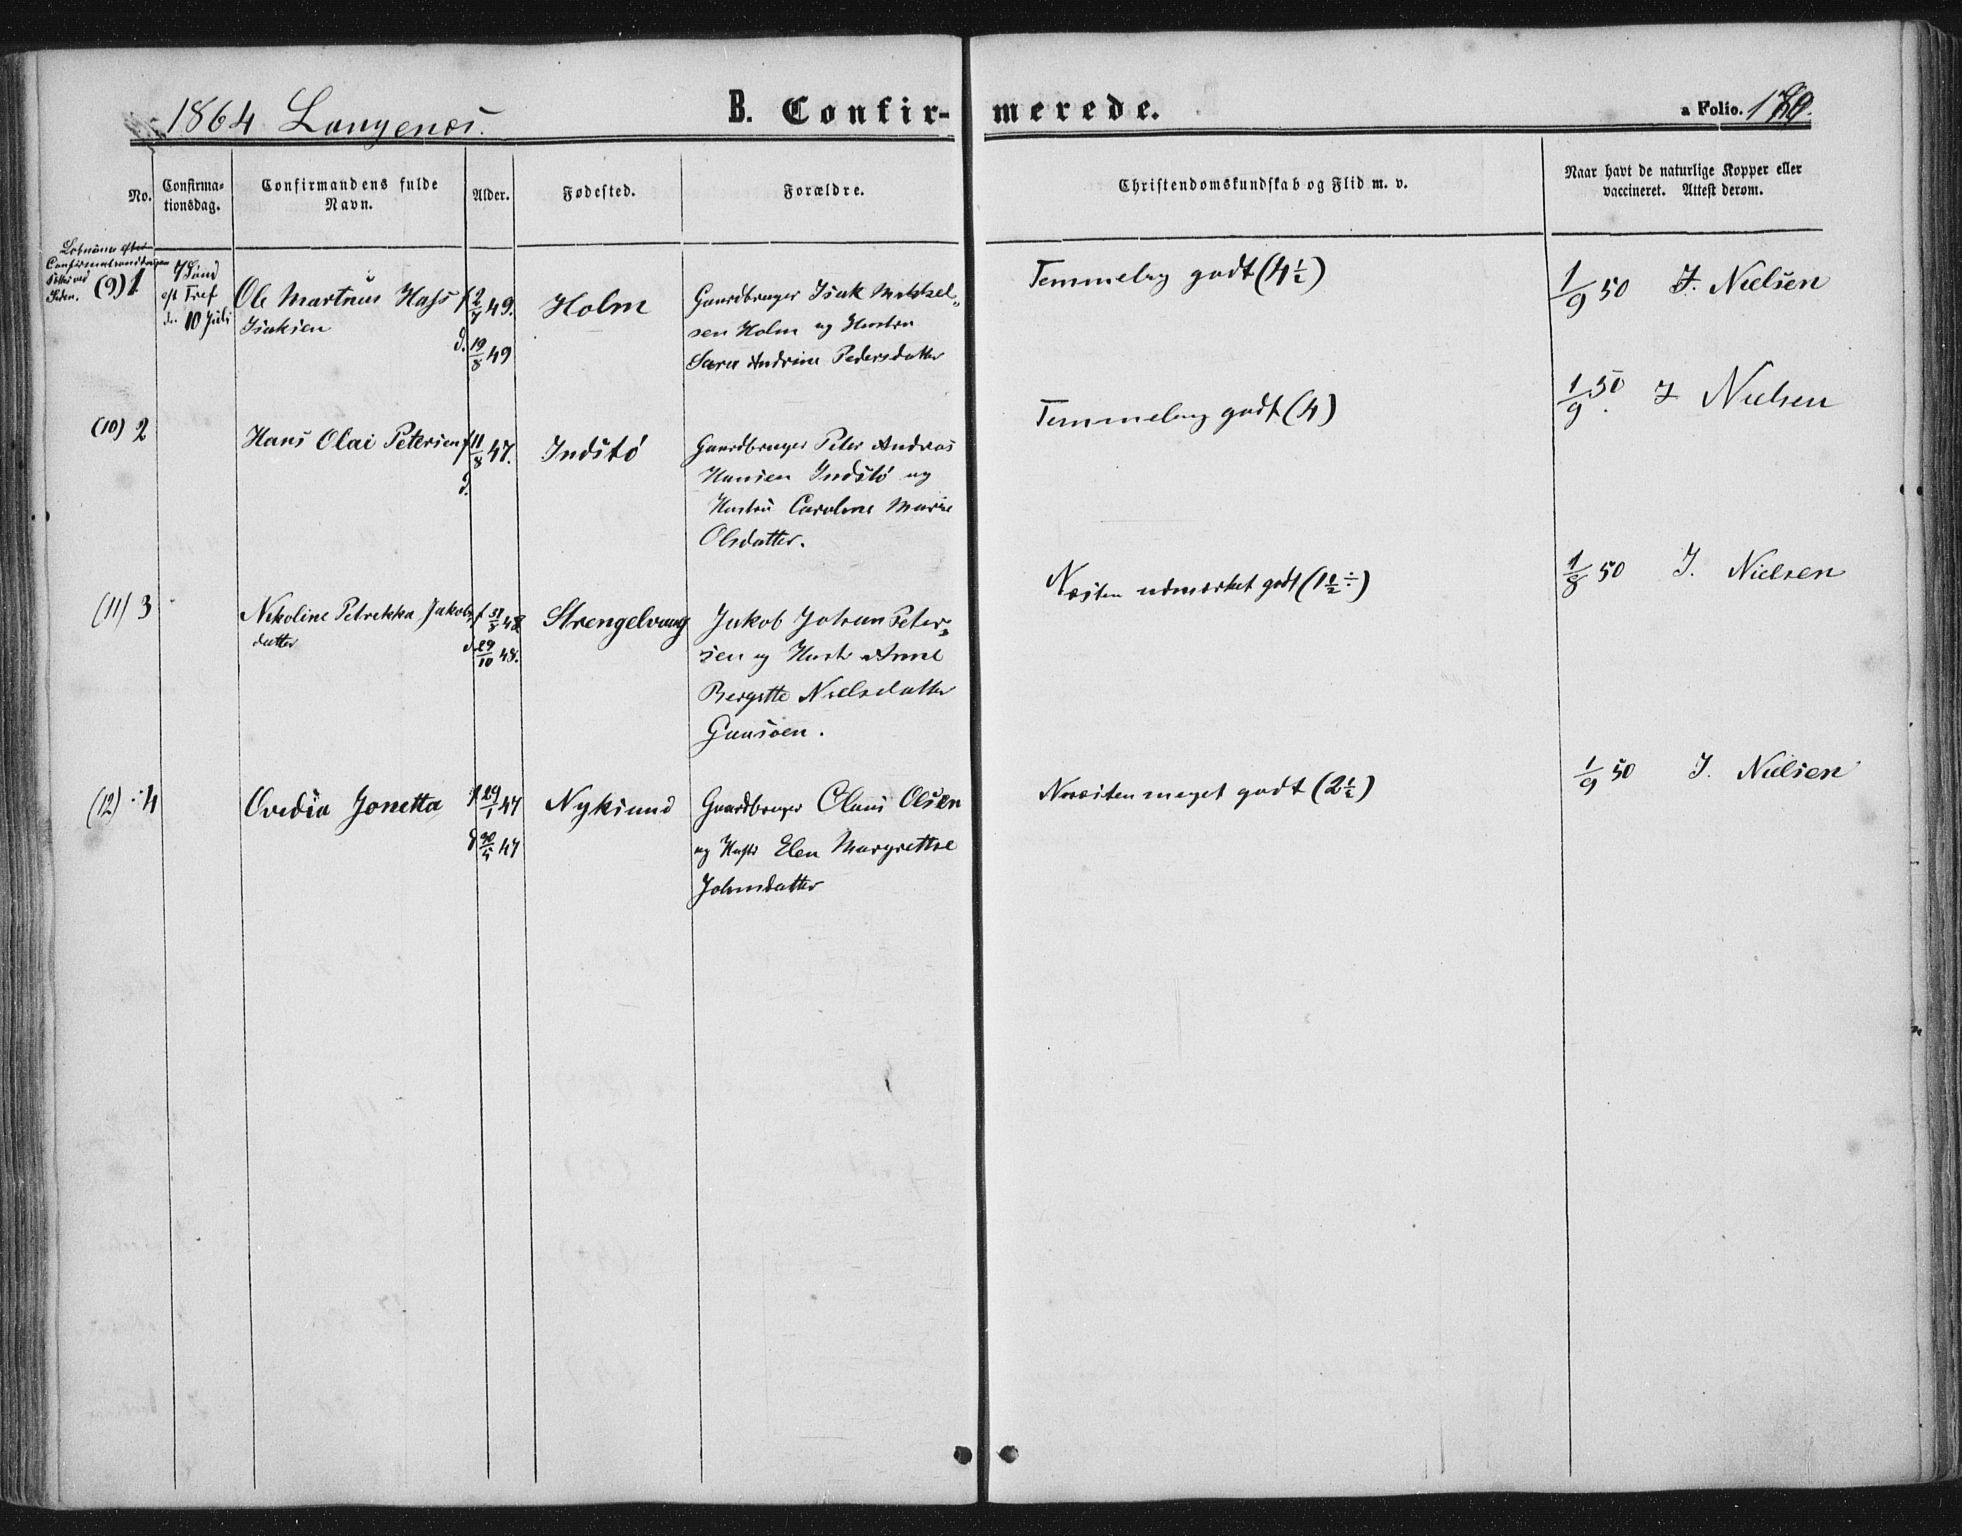 1864 Langenæs.
B. Confir-merede.
a Folio.
No.
Confirma-
tionsdag.
Confirmandens fulde
Navn.
Alder.
Fødested.
Forældre.
Christendomskundskab og Flid m. v.
Naar havt de naturlige Kopper eller
vaccineret. Attest derom.
(9) 1
7 Sønd
eft Tref
d. 10 Juli
Ole Martnus Hass
Isaksen
f 2/7 49.
d. 19/8 49
Holm
Gaardbruger Isak Mikkel-
sen Holm og Hustru
Sara Andrine Pedersdatter
Temmelig godt (4½)
1/9 50 J. Nielsen
(10) 2
Hans Olai Petersen
f 11/8 47.
d.
Indstø
Gaardbruger Peter Andreas
Hansen Indstø og
Hustru Caroline Marie
Olsdatter.
Temmelig godt (4)
1/9 50 J Nielsen
(11) 3
Nikoline Petrekka Jakobs
datter
f 31/8 48
d. 29/10 48.
Strengelvaag
Jakob Johan Peter-
sen og Hustr Anne
Bergitte Nielsdatter
Gaasøen.
Næsten udmærket godt (1½ ÷)
1/8 50 J. Nielsen
(12) 4
Ovedia Jonetta
f 29/1 47
d 30/5 47
Nyksund
Gaardbruger Claus Olsen
og Hustr Elen Margrethe
Johnsdatter
Næsten meget godt (2½)
1/9 50 J. Nielsen